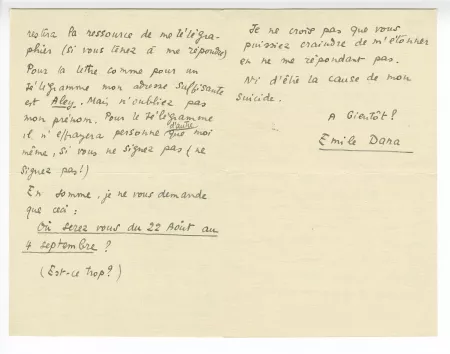 restera la ressource de me télégra-
phier (si vous tenez à me répondre)
Pour la lettre comme pour un
télégramme mon adresse suffisante
est Aley. Mais n'oubliez pas
mon prénom. Pour le télégramme
il n'effrayera personne d'autre que moi
même, si vous ne signez pas (ne
signez pas!)
En somme, je ne vous demande
que ceci :
Où serez vous du 22 Août au
4 septembre ?
(Est-ce trop?)
Je ne crois pas que vous
puissiez craindre de m'étonner
en ne me répondant pas.
Ni d'être la cause de mon
suicide.
A bientôt?
Emile Dana